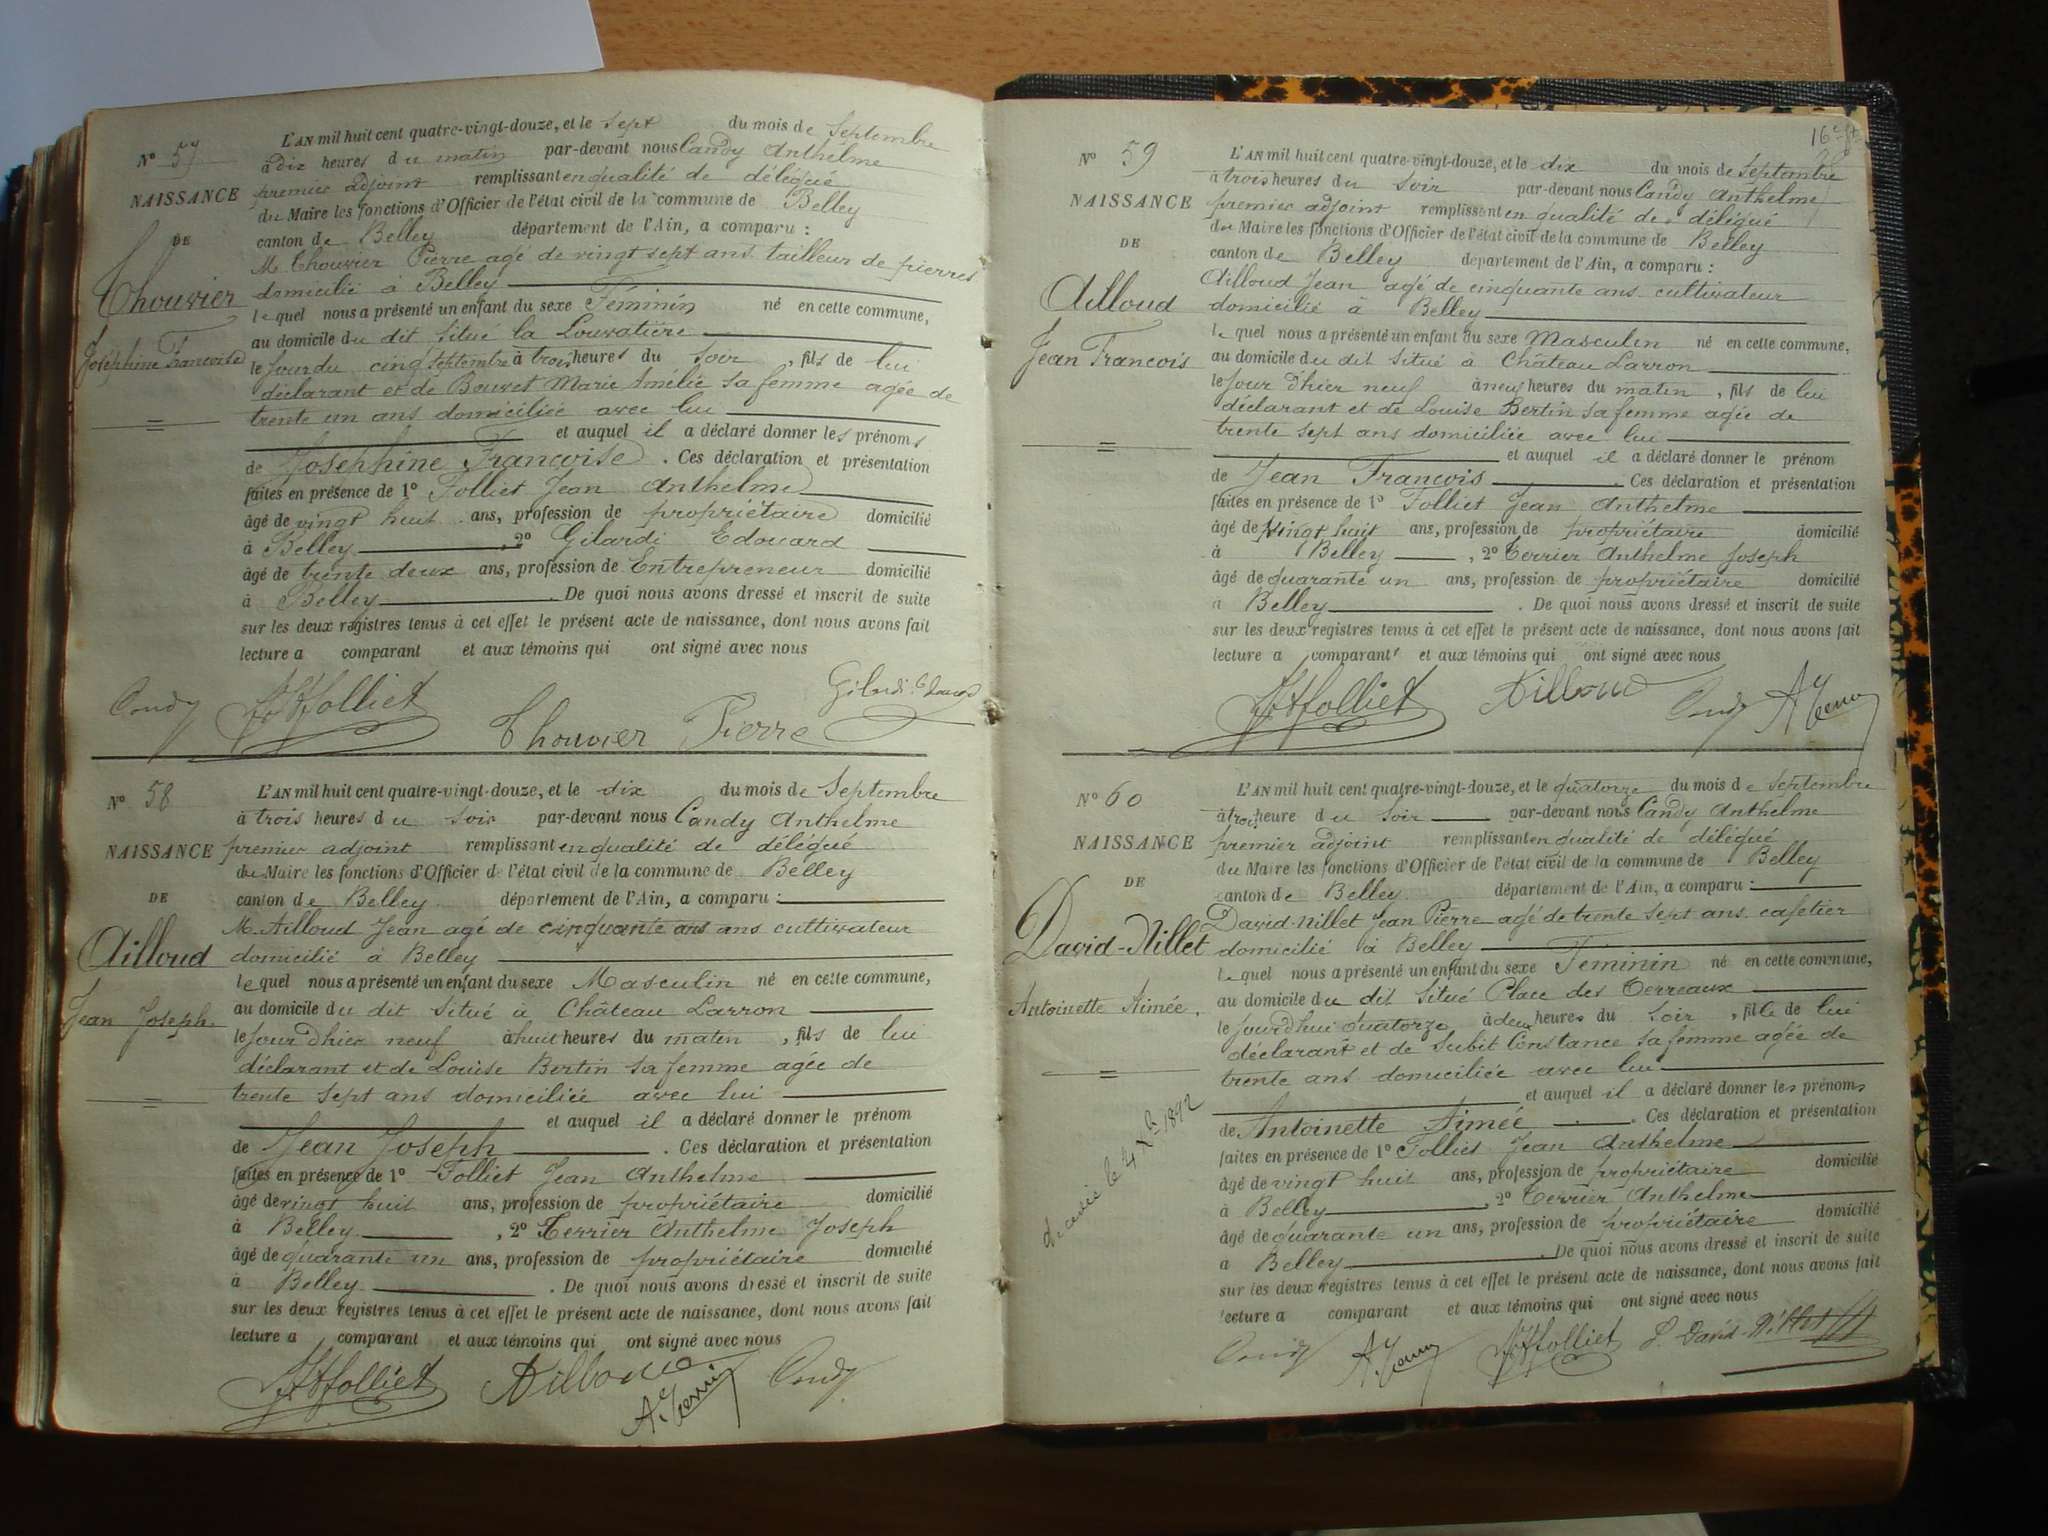 N° 57
NAISSANCE
DE
Chouvier
Joséphine Françoise
L'AN mil huit cent quatre-vingt-douze, et le sept du mois de Septembre
à dix heures du matin par-devant nous Candy Anthelme
premier adjoint remplissant en qualité de délégué
du Maire les fonctions d'Officier de l'état civil de la commune de Belley
canton de Belley département de l'Ain, a comparu :
M. Chouvier Pierre agé de vingt sept ans tailleur de pierres
domicilié à Belley
le quel nous a présenté un enfant du sexe Féminin né en cette commune,
au domicile du dit situé la Louvatière
le jour du cinq septembre à trois heures du soir, fils de lui
déclarant et de Bouvet Marie Amélie sa femme agée de
trente un ans domiciliée avec lui
et auquel il a déclaré donner les prénoms
de Josephine Françoise. Ces déclaration et présentation
faites en présence de 1° Folliet Jean Anthelme
âgé de vingt huit ans, profession de propriétaire domicilié
à Belley, 2° Gilardi Edouard
âgé de trente deux ans, profession de Entrepreneur domicilié
à Belley. De quoi nous avons dressé et inscrit de suite
sur les deux registres tenus à cet effet le présent acte de naissance, dont nous avons fait
lecture a comparant et aux témoins qui ont signé avec nous
Candy JAFolliet Chouvier Pierre Gilardi
N° 58
NAISSANCE
DE
Ailloud
Jean Joseph
L'AN mil huit cent quatre-vingt-douze, et le dix du mois de Septembre
à trois heures du soir par-devant nous Candy Anthelme
premier adjoint remplissant en qualité de délégué
du Maire les fonctions d'Officier de l'état civil de la commune de Belley
canton de Belley département de l'Ain, a comparu :
M. Ailloud Jean agé de cinquante ans ans cultivateur
domicilié à Belley
le quel nous a présenté un enfant du sexe Masculin né en cette commune,
au domicile du dit situé à Château Larron
le jour d'hier neuf à huit heures du matin, fils de lui
déclarant et de Louise Bertin sa femme agée de
trente sept ans domiciliée avec lui
et auquel il a déclaré donner le prénom
de Jean Joseph. Ces déclaration et présentation
faites en présence de 1° Folliet Jean Anthelme
âgé de vingt huit ans, profession de propriétaire domicilié
à Belley, 2° Terrier Anthelme Joseph
âgé de quarante un ans, profession de propriétaire domicilié
à Belley. De quoi nous avons dressé et inscrit de suite
sur les deux registres tenus à cet effet le présent acte de naissance, dont nous avons fait
lecture a comparant et aux témoins qui ont signé avec nous
JAFolliet Ailloud Candy
N° 59
NAISSANCE
DE
Ailloud
Jean Francois
L'AN mil huit cent quatre-vingt-douze, et le dix du mois de Septembre
à trois heures du soir par-devant nous Candy Anthelme
premier adjoint remplissant en qualité de délégué
du Maire les fonctions d'Officier de l'état civil de la commune de Belley
canton de Belley département de l'Ain, a comparu :
Ailloud Jean agé de cinquante ans cultivateur
domicilié à Belley
le quel nous a présenté un enfant du sexe Masculin né en cette commune,
au domicile du dit situé à Château Larron
le jour d'hier neuf à neuf heures du matin, fils de lui
déclarant et de Louise Bertin sa femme agée de
trente sept ans domiciliée avec lui
et auquel il a déclaré donner le prénom
de Jean Francois. Ces déclaration et présentation
faites en présence de 1° Folliet Jean Anthelme
âgé de vingt huit ans, profession de propriétaire domicilié
à Belley, 2° Terrier Anthelme Joseph
âgé de quarante un ans, profession de propriétaire domicilié
à Belley. De quoi nous avons dressé et inscrit de suite
sur les deux registres tenus à cet effet le présent acte de naissance, dont nous avons fait
lecture a comparant et aux témoins qui ont signé avec nous
JAFolliet Ailloud Candy
N° 60
NAISSANCE
DE
David-Nillet
Antoinette Aimée.
L'AN mil huit cent quatre-vingt-douze, et le quatorze du mois de septembre
à trois heure du soir par-devant nous Candy Anthelme
premier adjoint remplissant en qualité de délégué
du Maire les fonctions d'Officier de l'état civil de la commune de Belley
canton de Belley département de l'Ain, a comparu :
David-Nillet Jean Pierre agé de trente sept ans cafetier
domicilié à Belley
le quel nous a présenté un enfant du sexe Féminin né en cette commune,
au domicile du dit situé Place des Terreaux
le jourd'hui quatorze à deux heures du soir, fille de lui
déclarant et de Subit Constance sa femme agée de
trente ans domiciliée avec lui
et auquel il a déclaré donner les prénoms
de Antoinette Aimée. Ces déclaration et présentation
faites en présence de 1° Folliet Jean Anthelme
âgé de vingt huit ans, profession de propriétaire domicilié
à Belley, 2° Terrier Anthelme
âgé de quarante un ans, profession de propriétaire domicilié
a Belley. De quoi nous avons dressé et inscrit de suite
sur les deux registres tenus à cet effet le présent acte de naissance, dont nous avons fait
lecture a comparant et aux témoins qui ont signé avec nous
Candy JAFolliet P. David-Nillet